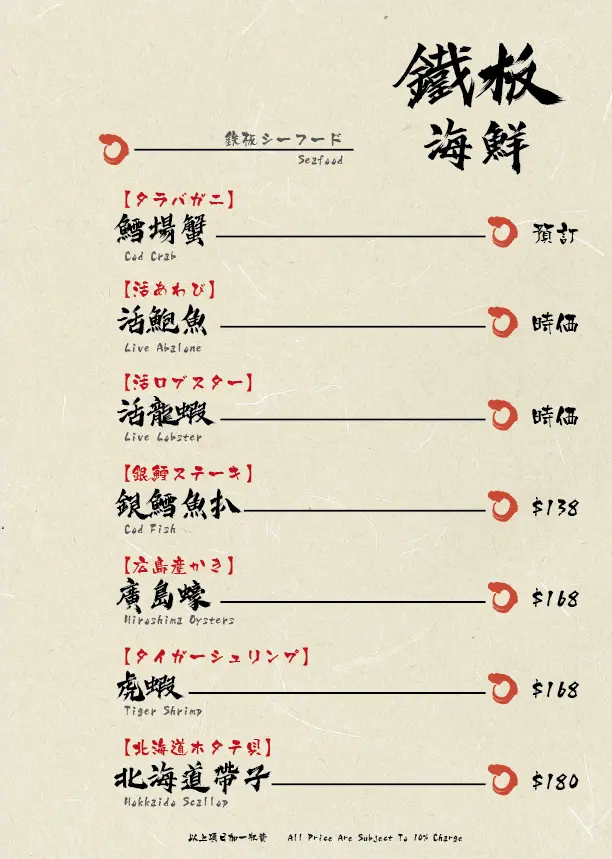 鐵板
海鮮
鉄板シーフード
Seafood
【タラバガニ】
鱈場蟹
預訂
Cod Crab
【活あわび】
活鮑魚
時価
Live Abalone
【活ロブスター】
活龍蝦
時価
Live Lobster
【銀鱈ステーキ】
銀鱈魚扒
$138
Cod Fish
【広島産かき】
廣島蠔
$168
Hiroshima Oysters
【タイガーシュリンプ】
虎蝦
$168
Tiger Shrimp
【北海道ホタテ唄】
北海道帶子
$180
Hokkaido Scallop
以上項目加一收費 All Price Are Subject To 10% Charge